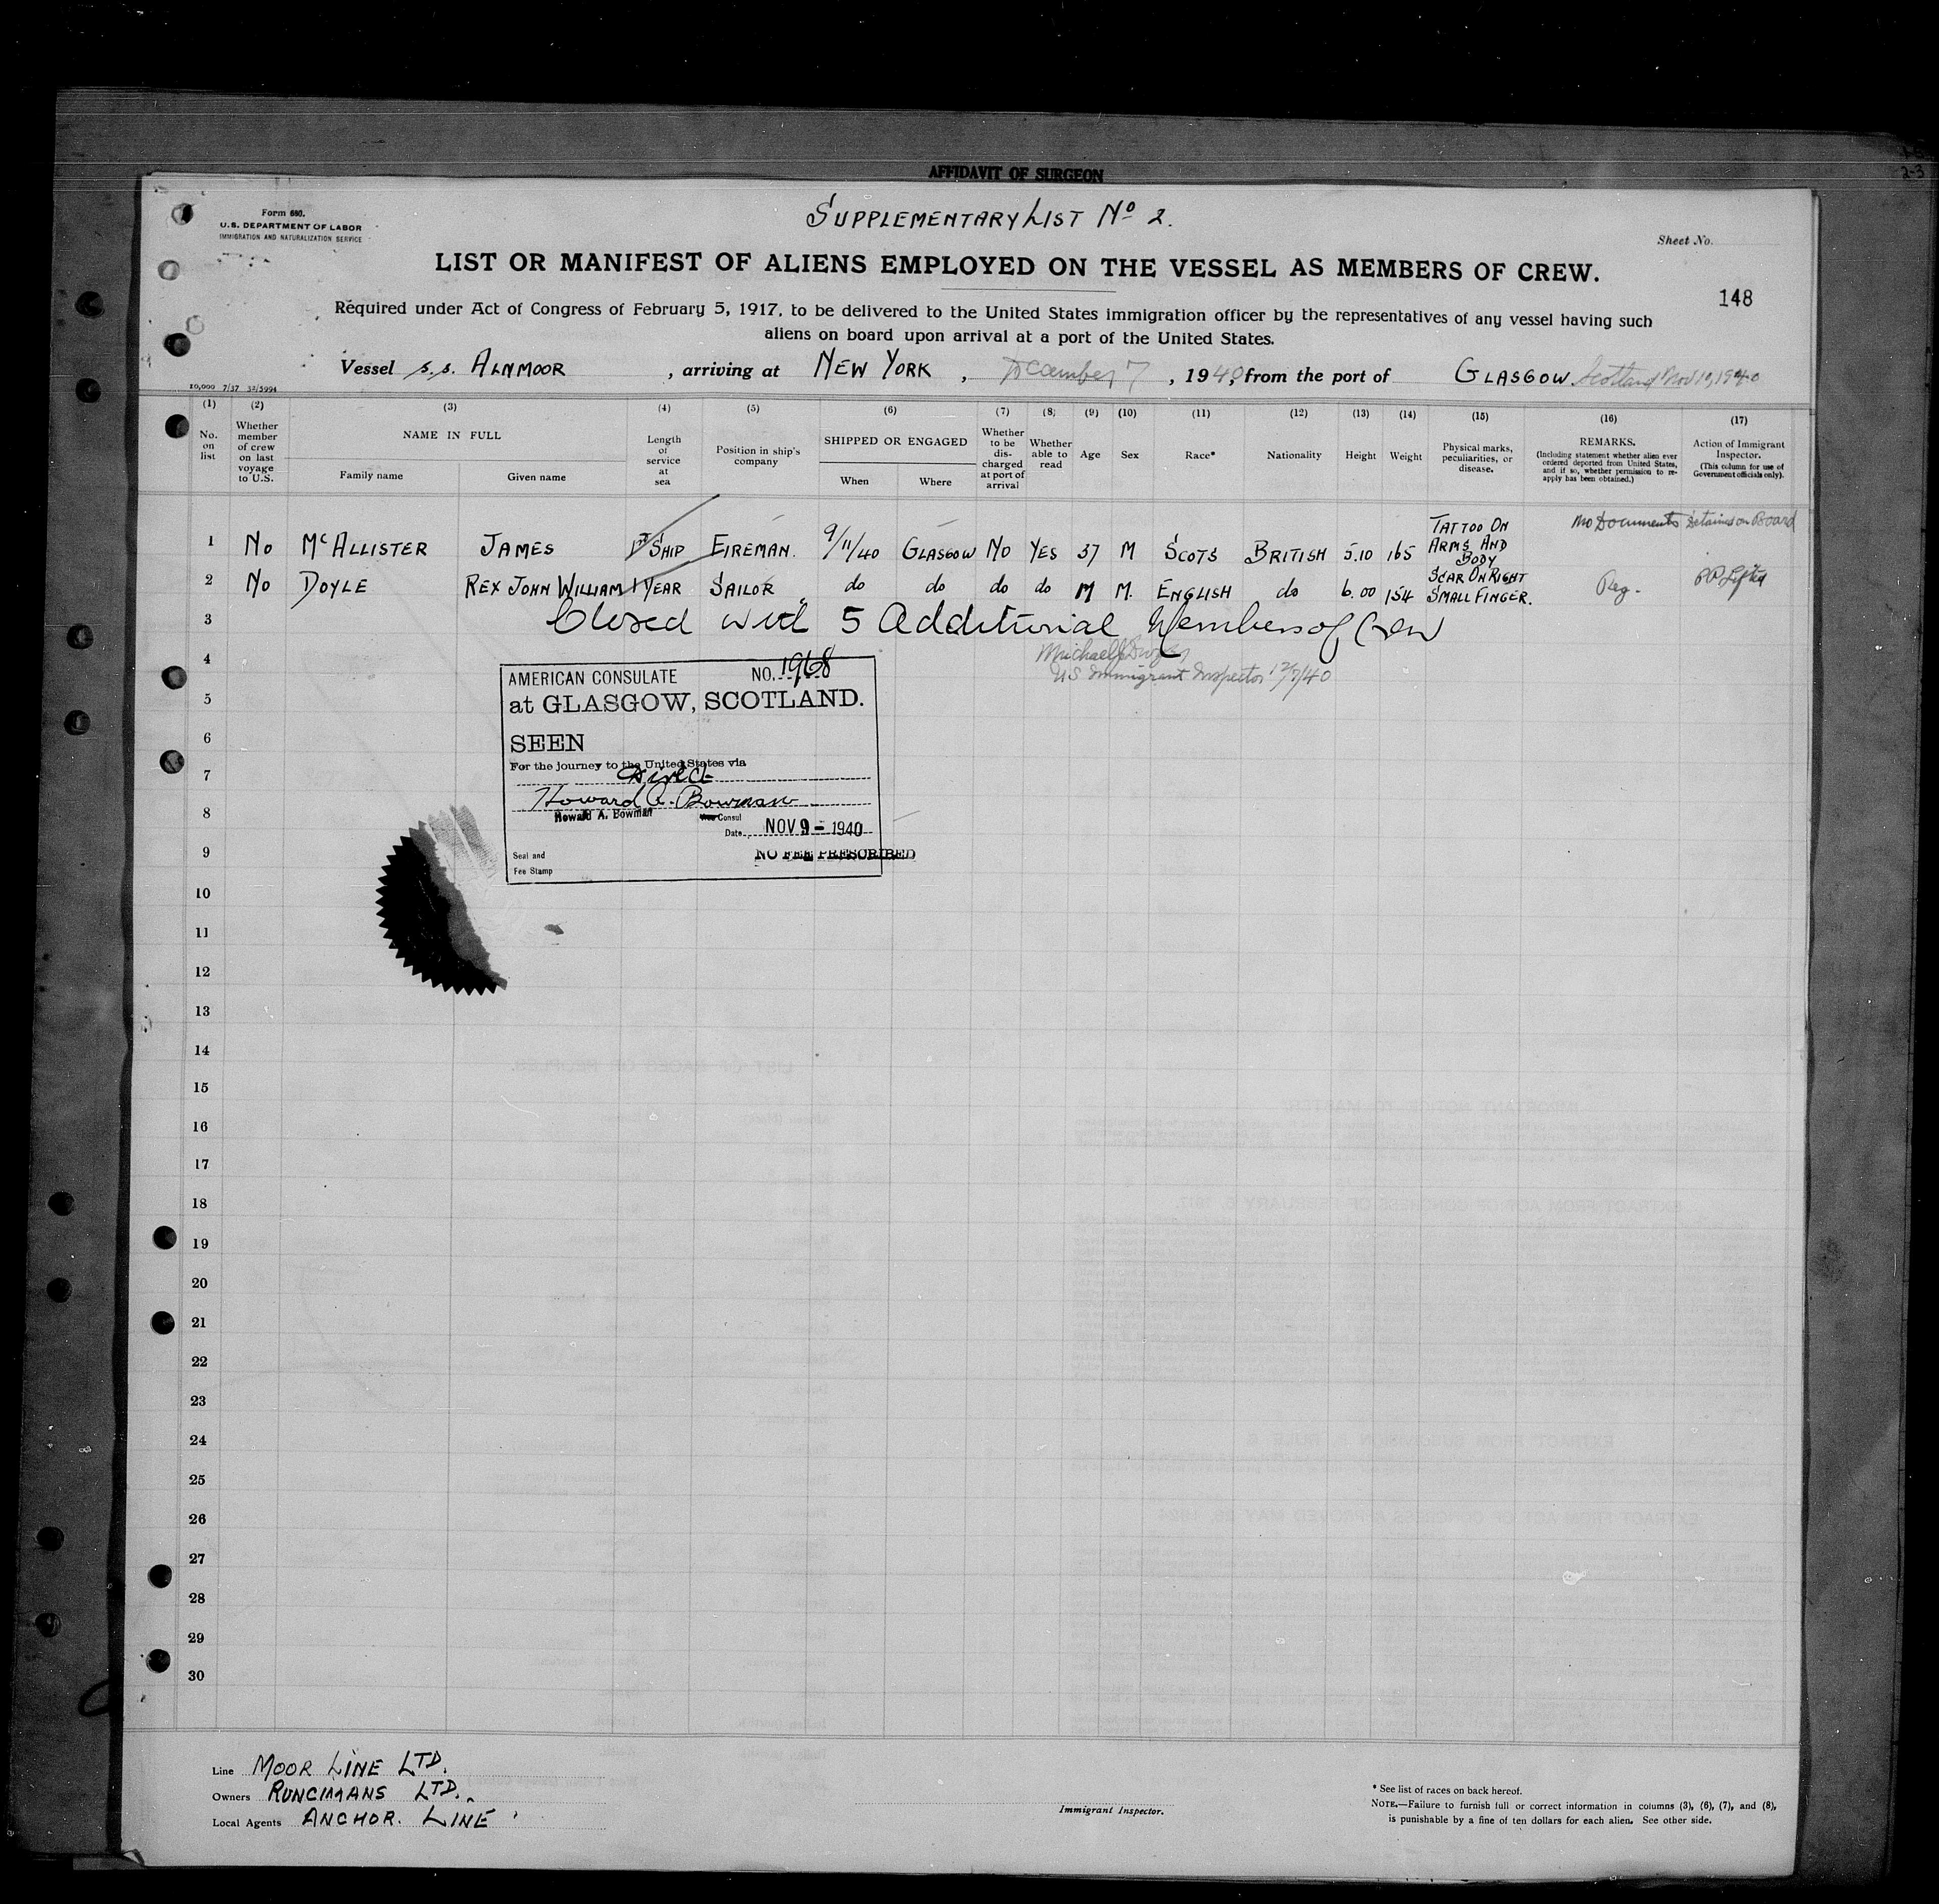 AFFIDAVIT OF SURGEON
2-3
Form 680.
U.S. DEPARTMENT OF LABOR
IMMIGRATION AND NATURALIZATION SERVICE
SUPPLEMENTARY LIST No 2.
Sheet No.
LIST OR MANIFEST OF ALIENS EMPLOYED ON THE VESSEL AS MEMBERS OF CREW.
148
Required under Act of Congress of February 5, 1917, to be delivered to the United States immigration officer by the representatives of any vessel having such
aliens on board upon arrival at a port of the United States.
Vessel S.S. ALNMOOR, arriving at NEW YORK, December 7, 1940, from the port of GLASGOW Scotland Nov 19, 1940
10,000 7/37 52/5994
(1) (2) (3) (4) (5) (6) (7) (8) (9) (10) (11) (12) (13) (14) (15) (16) (17)
No. on list
Whether member of crew on last voyage to U.S.
NAME IN FULL
Family name
Given name
Length of service at sea
Position in ship's company
SHIPPED OR ENGAGED
When
Where
Whether to be discharged at port of arrival
Whether able to read
Age
Sex
Race*
Nationality
Height
Weight
Physical marks, peculiarities, or disease.
REMARKS.
(Including statement whether alien ever ordered deported from United States, and if so, whether permission to re-apply has been obtained.)
Action of Immigrant Inspector.
(This column for use of Government officials only).
1 No McALLISTER JAMES 1st SHIP FIREMAN. 9/11/40 GLASGOW No YES 37 M SCOTS BRITISH 5.10 165 TATTOO ON ARMS AND BODY No Documents Detained on Board
2 No DOYLE REX JOHN WILLIAM 1 YEAR SAILOR do do do do M M. ENGLISH do 6.00 154 SCAR ON RIGHT SMALL FINGER. Reg. PP Lifted
3 Closed with 5 Additional Members of Crew
4 Michael J
US Immigrant Inspector 12/7/40
5
6
7
8
9
10
11
12
13
14
15
16
17
18
19
20
21
22
23
24
25
26
27
28
29
30
AMERICAN CONSULATE NO. 1968
at GLASGOW, SCOTLAND.
SEEN
For the journey to the United States via
Direct
Howard A. Bowman
Howard A. Bowman Vice Consul
Date NOV 9 - 1940
NO FEE PRESCRIBED
Seal and
Fee Stamp
Line MOOR LINE LTD.
Owners RUNCIMANS LTD.
Local Agents ANCHOR. LINE
Immigrant Inspector.
* See list of races on back hereof.
NOTE.—Failure to furnish full or correct information in columns (3), (6), (7), and (8),
is punishable by a fine of ten dollars for each alien. See other side.